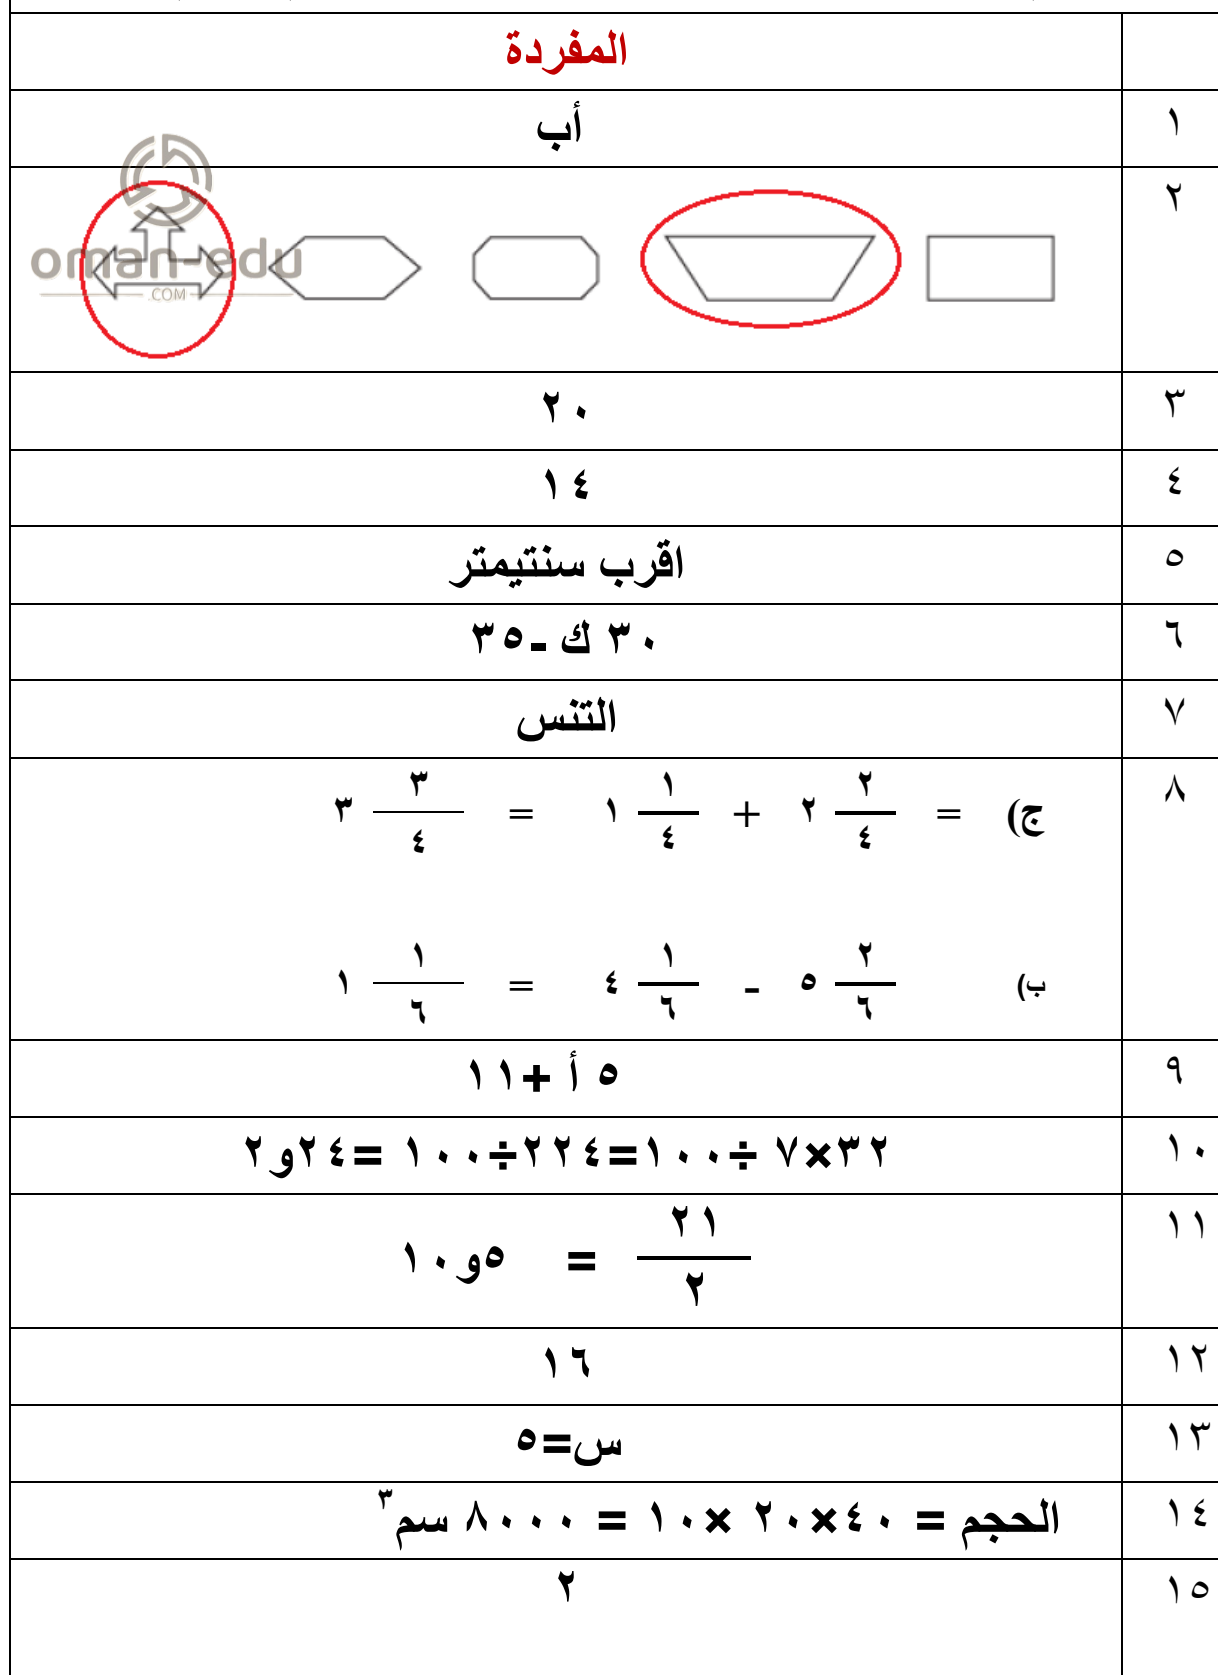 المفردة
١ أب
٢
oman-edu
.COM
٣ ٢٠
٤ ١٤
٥ اقرب سنتيمتر
٦ ٣٠ ك -٣٥
٧ التنس
٨ ج) = ٢ ٢/٤ + ١ ١/٤ = ٣ ٣/٤
ب) ٥ ٢/٦ - ٤ ١/٦ = ١ ١/٦
٩ ٥ أ +١١
١٠ ٣٢×٧ ÷١٠٠=٢٢٤÷١٠٠ =٢٤و٢
١١ ٢١/٢ = ٥و١٠
١٢ ١٦
١٣ س=٥
١٤ الحجم = ٤٠×٢٠ ×١٠ = ٨٠٠٠ سم٣
١٥ ٢